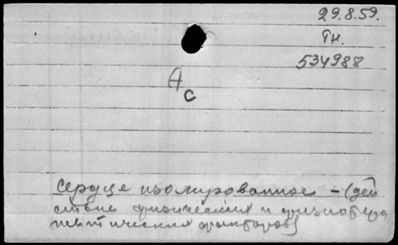 29.8.59.
Гн.
534988
А
с
Сердце изолированное – (дей
ствие физических и физиотера
певтических факторов)